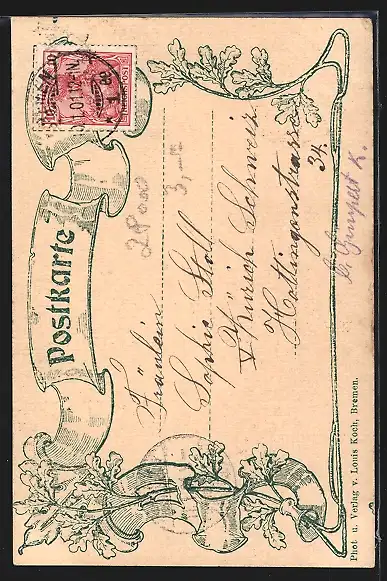 Postkarte
Fräulein
Sophie Stoll
V Zürich Schweiz
Hottingerstrasse
34.
3,-
Phot u. Verlag v. Louis Koch, Bremen.